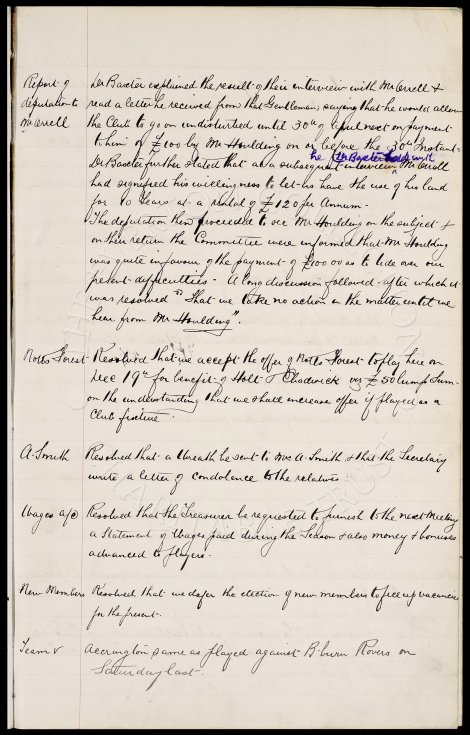 Report of
deputation to
Mr Orrell
Dr Baxter explained the result of their interview with Mr Orrell &
read a letter he received from that Gentleman, saying that he would allow
the Club to go on undisturbed until 30th of April next on payment
to him of £100 by Mr Houlding on or before the 30th Instant.
he (Dr Baxter) had with
Dr Baxter further stated that at a subsequent interview Mr Orrell
had signified his willingness to let us have the use of his land
for 10 Years at a rental of £120 per Annum.
The deputation then proceeded to see Mr Houlding on the subject &
on their return the Committee were informed that Mr Houlding
was quite in favour of the payment of £100 so as to tide over our
present difficulties - A long discussion followed after which it
was resolved "That we take no action in the matter until we
hear from Mr Houlding".
Notts Forest - Resolved that we accept the offer of Notts Forest to play here on
Dec 19th for benefit of Holt & Chadwick viz £50 lump Sum -
on the understanding that we shall increase offer if played as a
Club fixture.
A. Smith Resolved that a Wreath be sent to Mr A. Smith & that the Secretary
write a letter of condolance to the relatives.
Wages a/c Resolved that the Treasurer be requested to furnish to the next Meeting
a Statement of Wages paid during the Season & also money & bonuses
advanced to players.
New Members Resolved that we defer the election of new members to fill up vacancies
for the present.
Team v Accrington same as played against B'burn Rovers on
Saturday last.